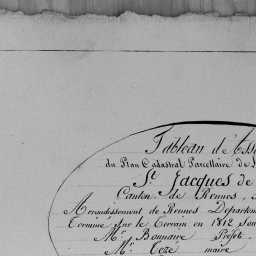 Tableau d'Ass
du Plan Cadastral Parcellaire de l
St. Jacques de
Canton de Rennes,
Arrondissement de Rennes Départem
Terminé sur le Terrain en 1812, sou
Mr. Bonnaire Préfet,
Mr. Cezé maire